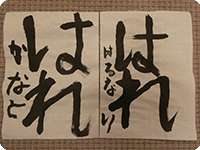 はれ
はるなり
はれ
かなと